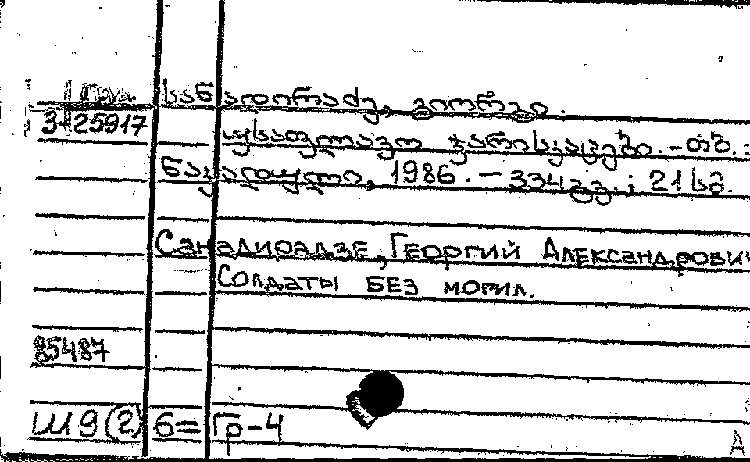 Груз.
3-25917
სანადირაძე, გიორგი.
უსაფლავო ჯარისკაცები. – თბ.:
ნაკადული, 1986. – 334 გვ.; 21 სმ.
Санадирадзе, Георгий Александрович
Солдаты без могил.
85487
Ш9(2)6=Гр-4
A